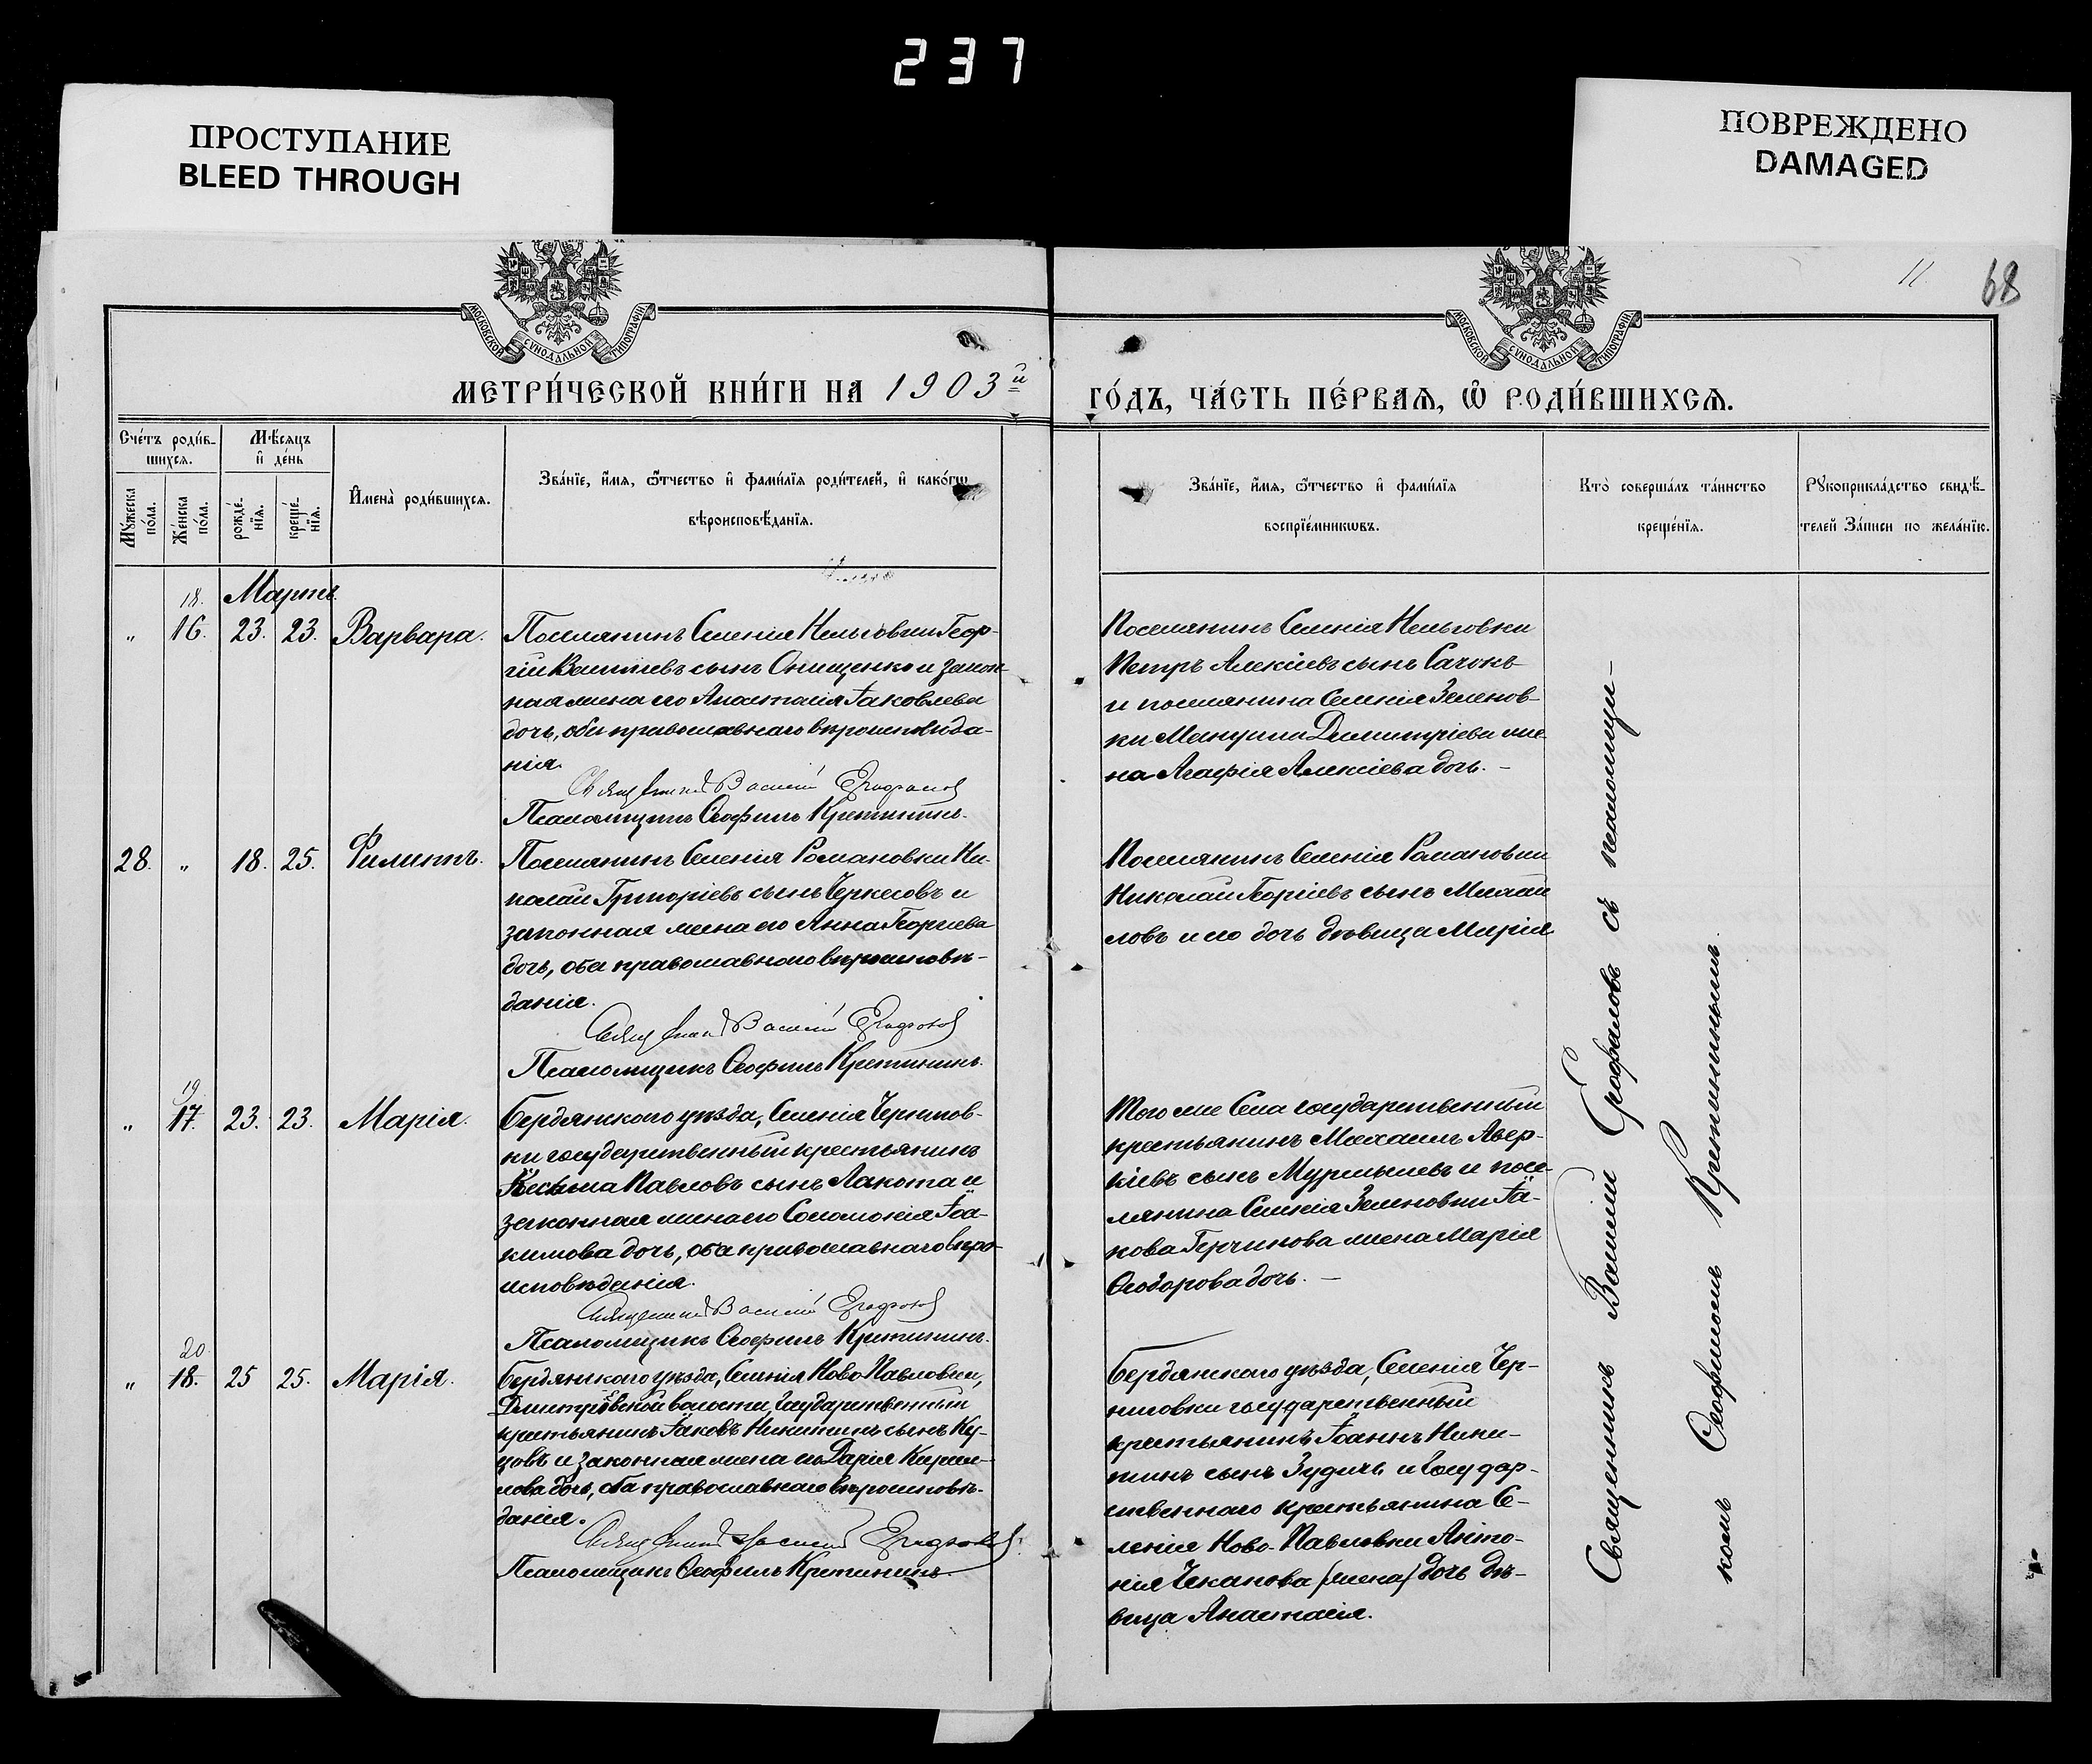 237
ПРОСТУПАНИЕ
BLEED THROUGH
ПОВРЕЖДЕНО
DAMAGED
11
68
МОСКОВСКОЙ СУНОДАЛЬНОЙ ТИПОГРАФІИ
МОСКОВСКОЙ СУНОДАЛЬНОЙ ТИПОГРАФІИ
МЕТРИ́ЧЕСКОЙ КНИ́ГИ НА 1903й
ГО́ДЪ, ЧА́СТЬ ПЕ́РВАѦ, Ѡ҆ РОДИ́ВШИХСѦ.
Сче́тъ роди́в-
шихсѧ.
Мѣ́сѧцъ
и҆ де́нь
Мꙋ́жеска
по́ла.
Же́нска
по́ла.
рожде́-
нїѧ.
креще́-
нїѧ.
И҆мена̀ роди́вшихсѧ.
Зва́нїе, и҆́мѧ, ѻ҆́тчество и҆ фами́лїѧ роди́телей, и҆ како́гѡ
вѣроисповѣ́данїѧ.
Зва́нїе, и҆́мѧ, ѻ҆́тчество и҆ фами́лїѧ
воспрїе́мникѡвъ.
Кто̀ соверша́лъ та́инство
креще́нїѧ.
Рꙋкоприкла́дство свидѣ́-
телей за́писи по жела́нїю.
18. Мартъ.
„ 16. 23. 23. Варвара.
Поселянинъ Селенія Нельговки Геор-
гій Васильевъ сынъ Онищенко и закон-
ная жена его Анастасія Іаковлева
дочь, оба православнаго вѣроисповѣда-
нія.
Священникъ Василій Ерофаловъ
Псаломщикъ Ѳеофилъ Кретининъ.
Поселянинъ Селенія Нельговки
Петръ Алексіевъ сынъ Сачокъ
и поселянина Селенія Зеленов-
ки Димитріева же-
на Агафія Алексіева дочь. –
28. „ 18. 25. Филиппъ.
Поселянинъ Селенія Романовки Ни-
колай Григоріевъ сынъ Черкесовъ и
законная жена его Анна Георгіева
дочь, оба православнаго вѣроисповѣ-
данія.
Священникъ Василій Ерофаловъ
Псаломщикъ Ѳеофилъ Кретининъ.
Поселянинъ Селенія Романовки
Николай Георгіевъ сынъ Михай
ловъ и его дочь дѣвица Марія
19
„ 17. 23. 23. Марія.
Бердянскаго уѣзда, Селенія Чернигов-
ки государственный крестьянинъ
Косьма Павловъ сынъ Лакота и
законная жена его Соломонія Іоа-
кимова дочь, оба православнаго вѣро-
исповѣданія.
Священникъ Василій Ерофаловъ
Псаломщикъ Ѳеофилъ Кретининъ.
Того же Села государственный
крестьянинъ Михаилъ Авер-
кіевъ сынъ и посе-
лянина Селенія Зеленовки Іа-
кова Герчикова жена Марія
Ѳеодорова дочь. –
20
„ 18. 25 25. Марія.
Бердянскаго уѣзда, Селенія Ново-Павловки,
Дмитровской волости, государственный
крестьянинъ Іаковъ Никитинъ сынъ Ку-
цовъ и законная жена его Дарія Кирил-
лова дочь, оба православнаго вѣроисповѣ-
данія.
Священникъ Василій Ерофаловъ
Псаломщикъ Ѳеофилъ Кретининъ
Бердянскаго уѣзда, Селенія Чер-
ниговки государственный
крестьянинъ Іоаннъ Ники-
тинъ сынъ Зудичъ и Государ-
ственнаго крестьянина Се-
ленія Ново-Павловки Анто-
нія Чеканова (жена) дочь дѣ-
вица Анастасія.
Священникъ Василій Ерофаловъ съ псаломщи-
комъ Ѳеофиломъ Кретининымъ.